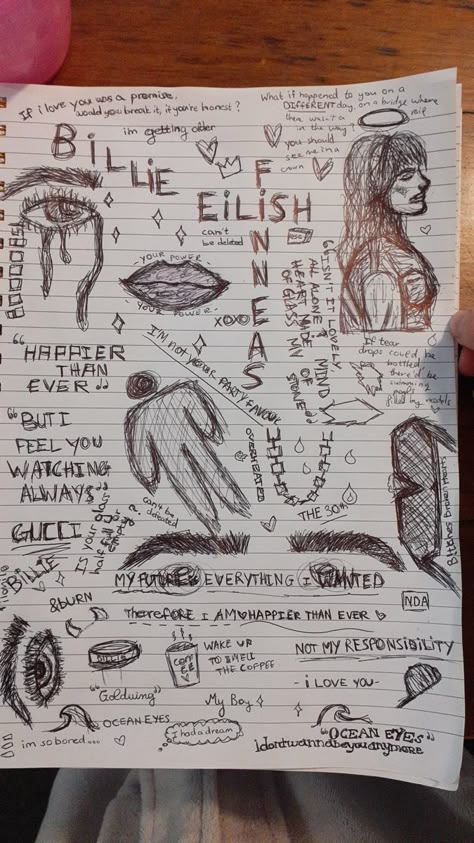 If i love you was a promise,
would you break it, if you're honest?
What if happened to you on a
DIFFERENT day, on a bridge where
there wasn't a
in the way?
you should
see me in a
crown
im getting older
BiLLiE
EiLiSH
FiNNEAS
can't
be deleted
"YOUR POWER-
-YOUR POWER-
XOXO
"ISN'T IT LOVELY
ALL ALONE?
HEART MADE
OF GLASS MY
MIND OF
STONE"
If tear
drops could be
bottled
there'd be
swimming
pools
filled by models
"HAPPIER
THAN
EVER"
I'M NOT YOUR PARTY FAVOUR
"BUT I
FEEL YOU
WATCHING
ALWAYS"
OVERHEATED
is your glass
half full or
empty?
can't be
defeated
THE 30th
Bitches Broken Hearts
GUCCI
BILLIE
MY FUTURE EVERYTHING I WANTED
NDA
&BURN
THEREFORE I AM HAPPIER THAN EVER
BILLIE
COFFEE
WAKE UP
TO SMELL
THE COFFEE
NOT MY RESPONSIBILITY
- i LOVE YOU-
"Goldwing"
My Boy
OCEAN EYES
I had a dream
"OCEAN EYES"
im so bored...
idontwannabeyouanymore